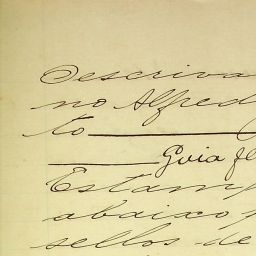 O escriva
no Alfred
to
Guia fl
Estamp
abaixo
sellos de